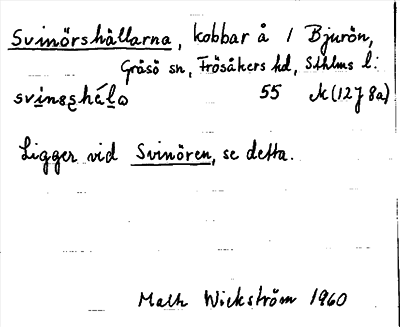 Svinörshällarna, kobbar å / Bjurön,
Gräsö sn, Frösåkers hd, Sthlms l:
55 K(12J 8a)
Ligger vid Svinören, se detta.
Math Wickström 1960